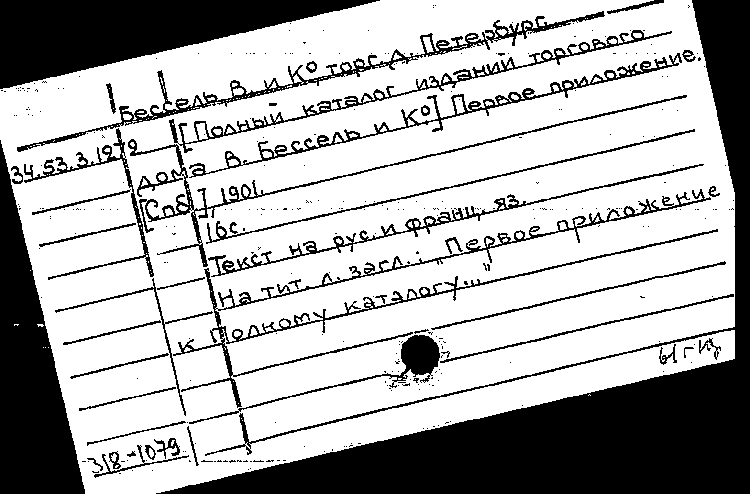 Бессель, В. и К° торг. д. Петербург.
[Полный каталог изданий торгового
34.53.3.1272
дома В. Бессель и К°] Первое приложение.
[Спб], 1901.
16с.
Текст на рус. и франц. яз.
На тит. л. загл.: „Первое приложение
к Полному каталогу..."
318-1079